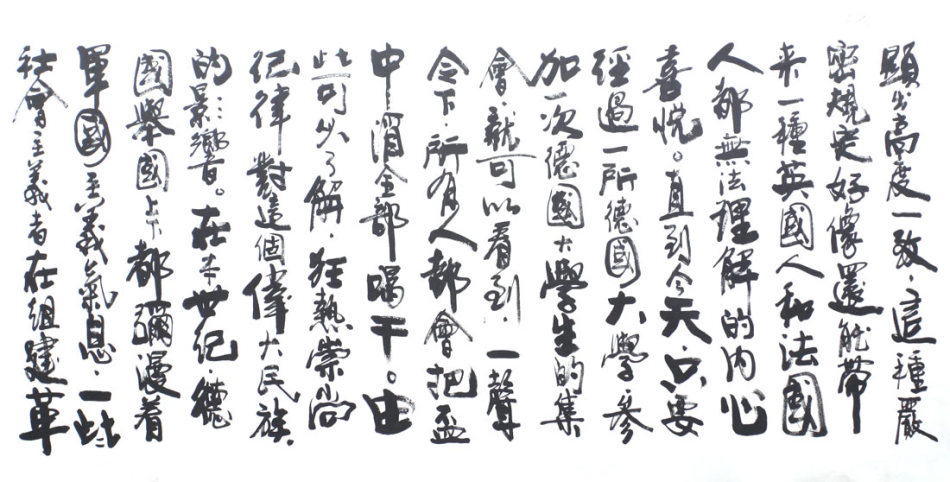 顯出高度一致，這種嚴
密規定好像還能帶
来一種英國人和法國
人都無法理解的内心
喜悦。直到今天，只要
經過一所德國大學，参
加一次德國大學生的集
會，就可以看到，一聲
令下，所有人都會把盃
中酒全部喝干。由
此可以了解，狂熱崇尚
紀律對這個偉大民族
的影響。在本世紀，德
國舉國上下都彌漫着
軍國主義氣息，一些
社會主義者在組建革